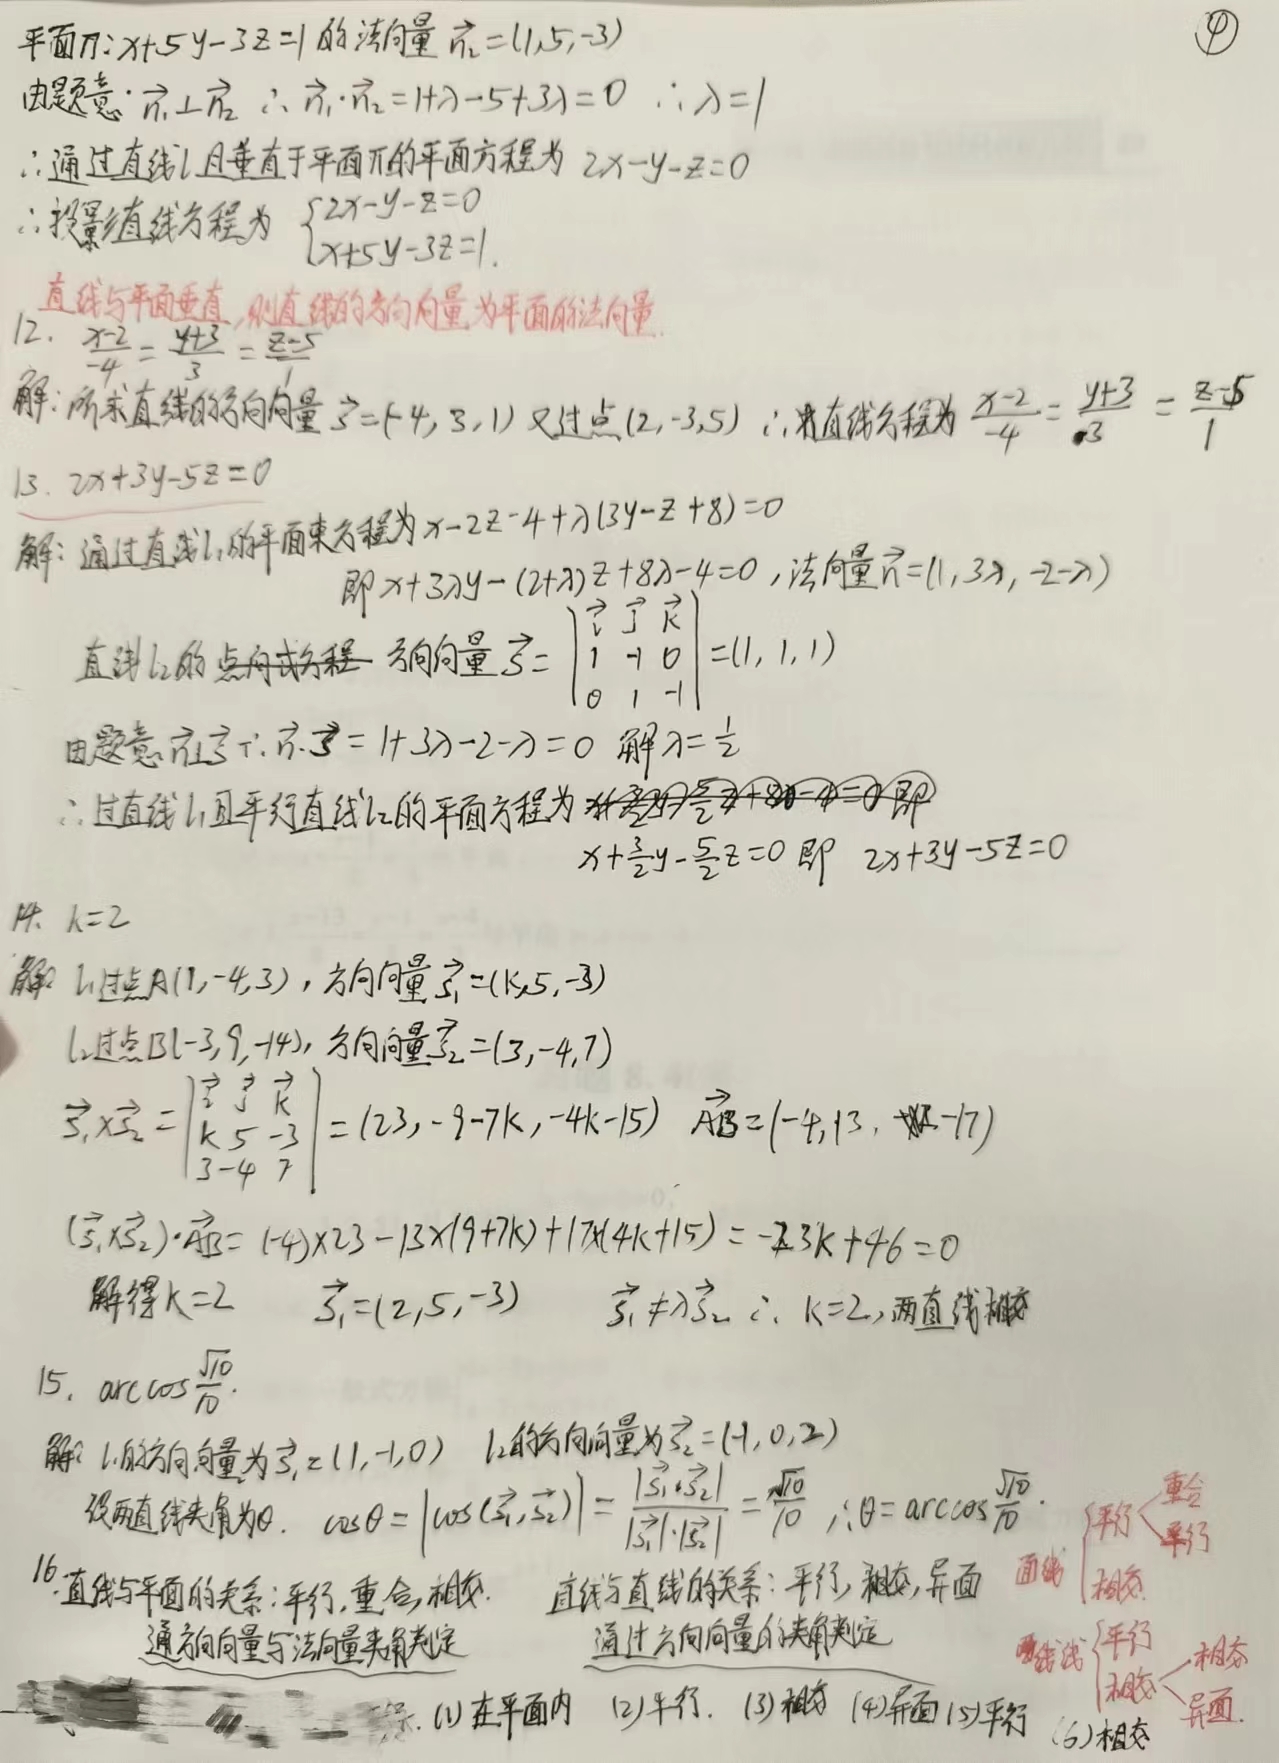 ④
平面π:x+5y-3z=1 的法向量 n₂=(1,5,-3)
由题意·n₁⊥n₂ ∴ n₁·n₂=1+λ-5+3λ=0 ∴λ=1
∴通过直线l且垂直于平面π的平面方程为 2x-y-z=0
∴投影直线方程为 {2x-y-z=0
x+5y-3z=1.
直线与平面垂直,则直线的方向向量为平面的法向量.
12. (x-2)/-4 = (y+3)/3 = (z-5)/1
解:所求直线的方向向量 s=(-4,3,1) 又过点(2,-3,5) ∴直线方程为 (x-2)/-4 = (y+3)/3 = (z-5)/1
13. 2x+3y-5z=0
解:通过直线l₁的平面束方程为x-2z-4+λ(3y-z+8)=0
即x+3λy-(2+λ)z+8λ-4=0,法向量n=(1,3λ,-2-λ)
直线l₂的 点向式方程 方向向量 s= |i j k; 1 -1 0; 0 1 -1| =(1,1,1)
由题意n⊥s ∴n·s=1+3λ-2-λ=0 解λ=1/2
∴过直线l₁且平行直线l₂的平面方程为
x+3/2y-5/2z=0 即 2x+3y-5z=0
14. k=2
解: l₁过点A(1,-4,3),方向向量s₁=(k,5,-3)
l₂过点B(-3,9,-14),方向向量s₂=(3,-4,7)
s₁×s₂= |i j k; k 5 -3; 3 -4 7| =(23,-9-7k,-4k-15) AB=(-4,13,-17)
(s₁×s₂)·AB=(-4)×23-13×(9+7k)+17×(4k+15)=-23k+46=0
解得k=2 s₁=(2,5,-3) s₁≠λs₂ ∴k=2,两直线相交
15. arccos √10/10.
解: l₁的方向向量为s₁=(1,-1,0) l₂的方向向量为s₂=(-1,0,2)
设两直线夹角为θ. cosθ=|cos(s₁,s₂)|= |s₁·s₂|/|s₁|·|s₂| = √10/10,∴θ=arccos √10/10.
面线 {平行 <重合 平行
相交
16.直线与平面的关系:平行,重合,相交. 直线与直线的关系:平行,相交,异面
通方向向量与法向量夹角判定 通过方向向量的夹角判定
线线 {平行
相交 <相交 异面.
(1)在平面内 (2)平行. (3)相交 (4)异面 (5)平行 (6)相交